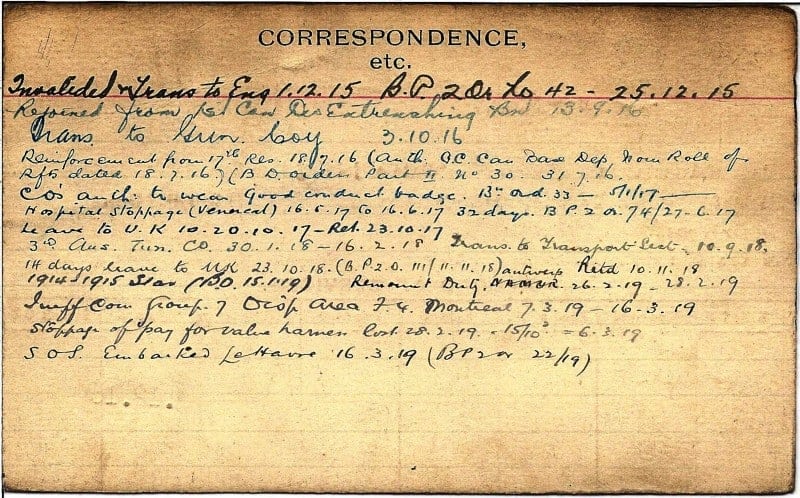 CORRESPONDENCE,
etc.
Invalided & Trans to Eng 1.12.15 B.P. 2 Or Lo 42 - 25.12.15
Rejoined from 1st Can Div Entrenching Bn 13.9.16
Trans. to Gun. Coy 3.10.16
Reinforcement from 17th Res. 18.7.16 (Auth: O.C. Can Base Dep, Nom Roll of
Rfts dated 18.7.16) (B D orders Part II No 30. 31.7.16.
CO's auth: to wear Good conduct badge. Bn ord. 33 - 5/1/17
Hospital Stoppage (Venereal) 16.5.17 to 16.6.17 32 days. B P. 2 or. 74/27-6.17
Leave to U.K 10.20.10.17 - Ret. 23.10.17
3rd Aus. Tun. Co. 30.1.18 - 16.2.18 Trans. to Transport Sect - 10.9.18.
14 days leave to UK 23.10.18. (B.P.2.O. 111/11.11.18) Retd 10.11.18
1914-1915 Star (D.O. 15.1.19) Remount Duty, 26.2.19 - 28.2.19
Ineff Com Group. 7 Disp Area F.4. Montreal 7.3.19 - 16.3.19
Stoppage of pay for value harness lost 28.2.19. - 6.3.19
S O S. Embarked Le Havre 16.3.19 (B P 2 or 22/19)